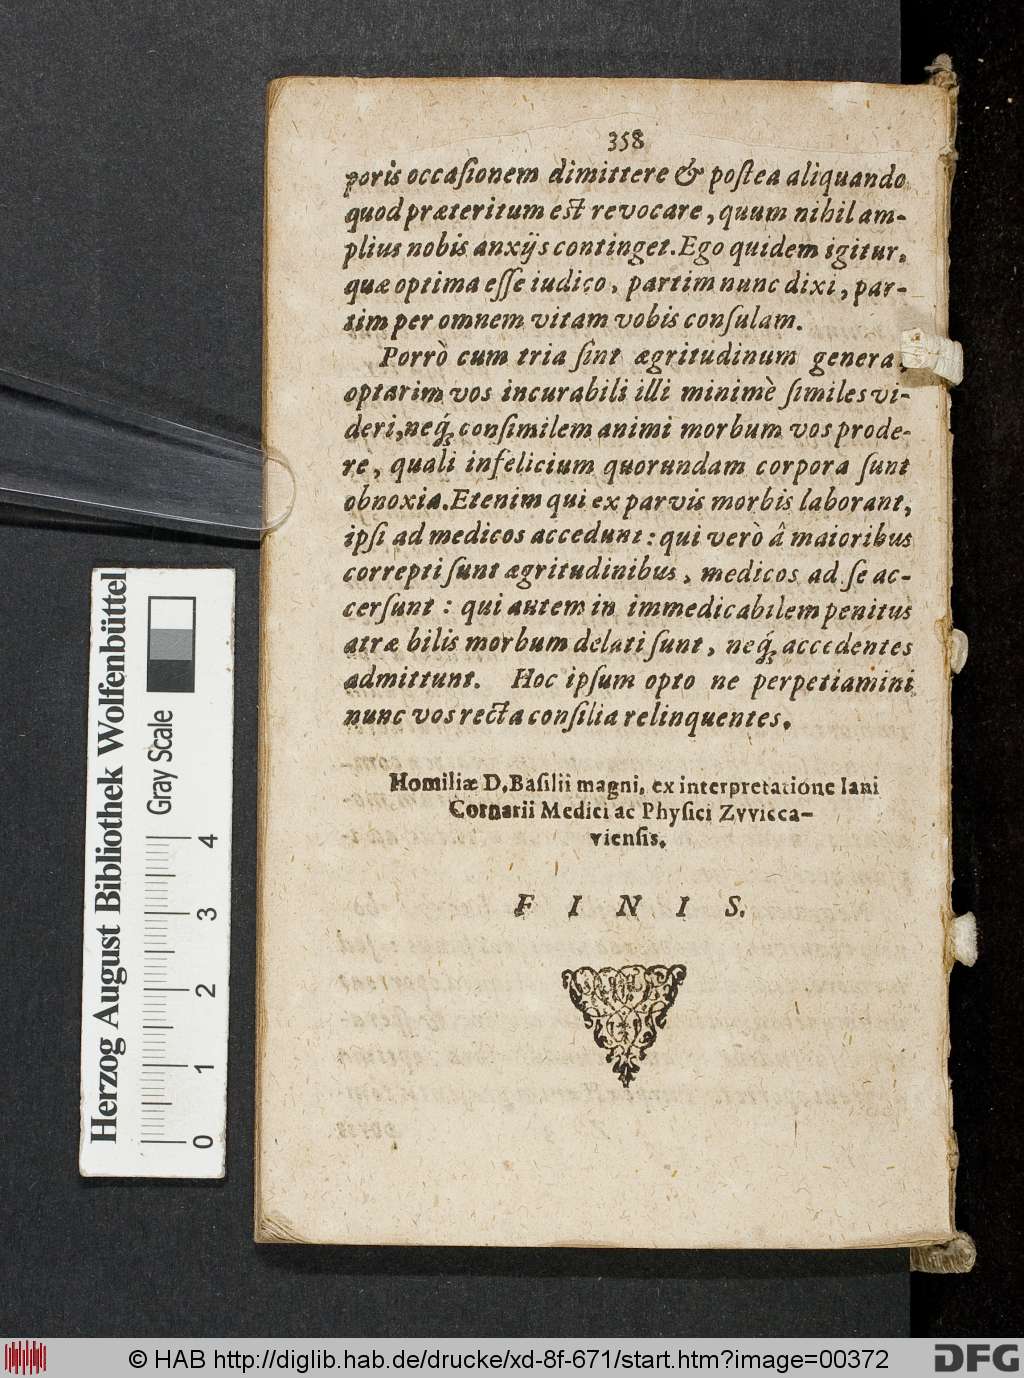 358
poris occaſionem dimittere & poſtea aliquando
quod præteritum est revocare, quum nihil am-
plius nobis anxijs continget. Ego quidem igitur,
quæ optima eſſe iudico, partim nunc dixi, par-
tim per omnem vitam vobis conſulam.
Porrò cum tria ſint ægritudinum genera,
optarim vos incurabili illi minimè ſimiles vi-
deri, neq́; conſimilem animi morbum vos prode-
re, quali infelicium quorundam corpora ſunt
obnoxia. Etenim qui ex parvis morbis laborant,
ipſi ad medicos accedunt: qui verò â maioribus
correpti ſunt ægritudinibus, medicos ad ſe ac-
cerſunt: qui autem in immedicabilem penitus
atræ bilis morbum delati ſunt, neq́; accedentes
admittunt. Hoc ipſum opto ne perpetiamini
nunc vos recta conſilia relinquentes.
Homiliæ D. Baſilii magni, ex interpretatione Iani
Cornarii Medici ac Phyſici Zvvicca-
vienſis.
F I N I S.
Herzog August Bibliothek Wolfenbüttel
Gray Scale
0 1 2 3 4
© HAB http://diglib.hab.de/drucke/xd-8f-671/start.htm?image=00372
DFG